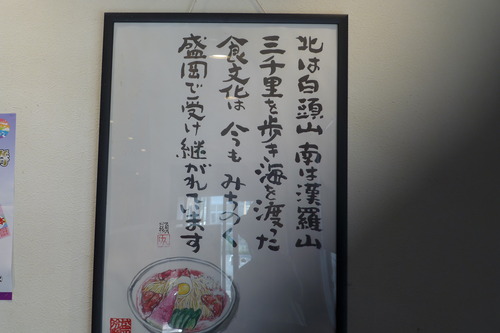 北は白頭山 南は漢羅山
三千里を歩き海を渡った
食文化は 今も みちのく
盛岡で受け継がれてます